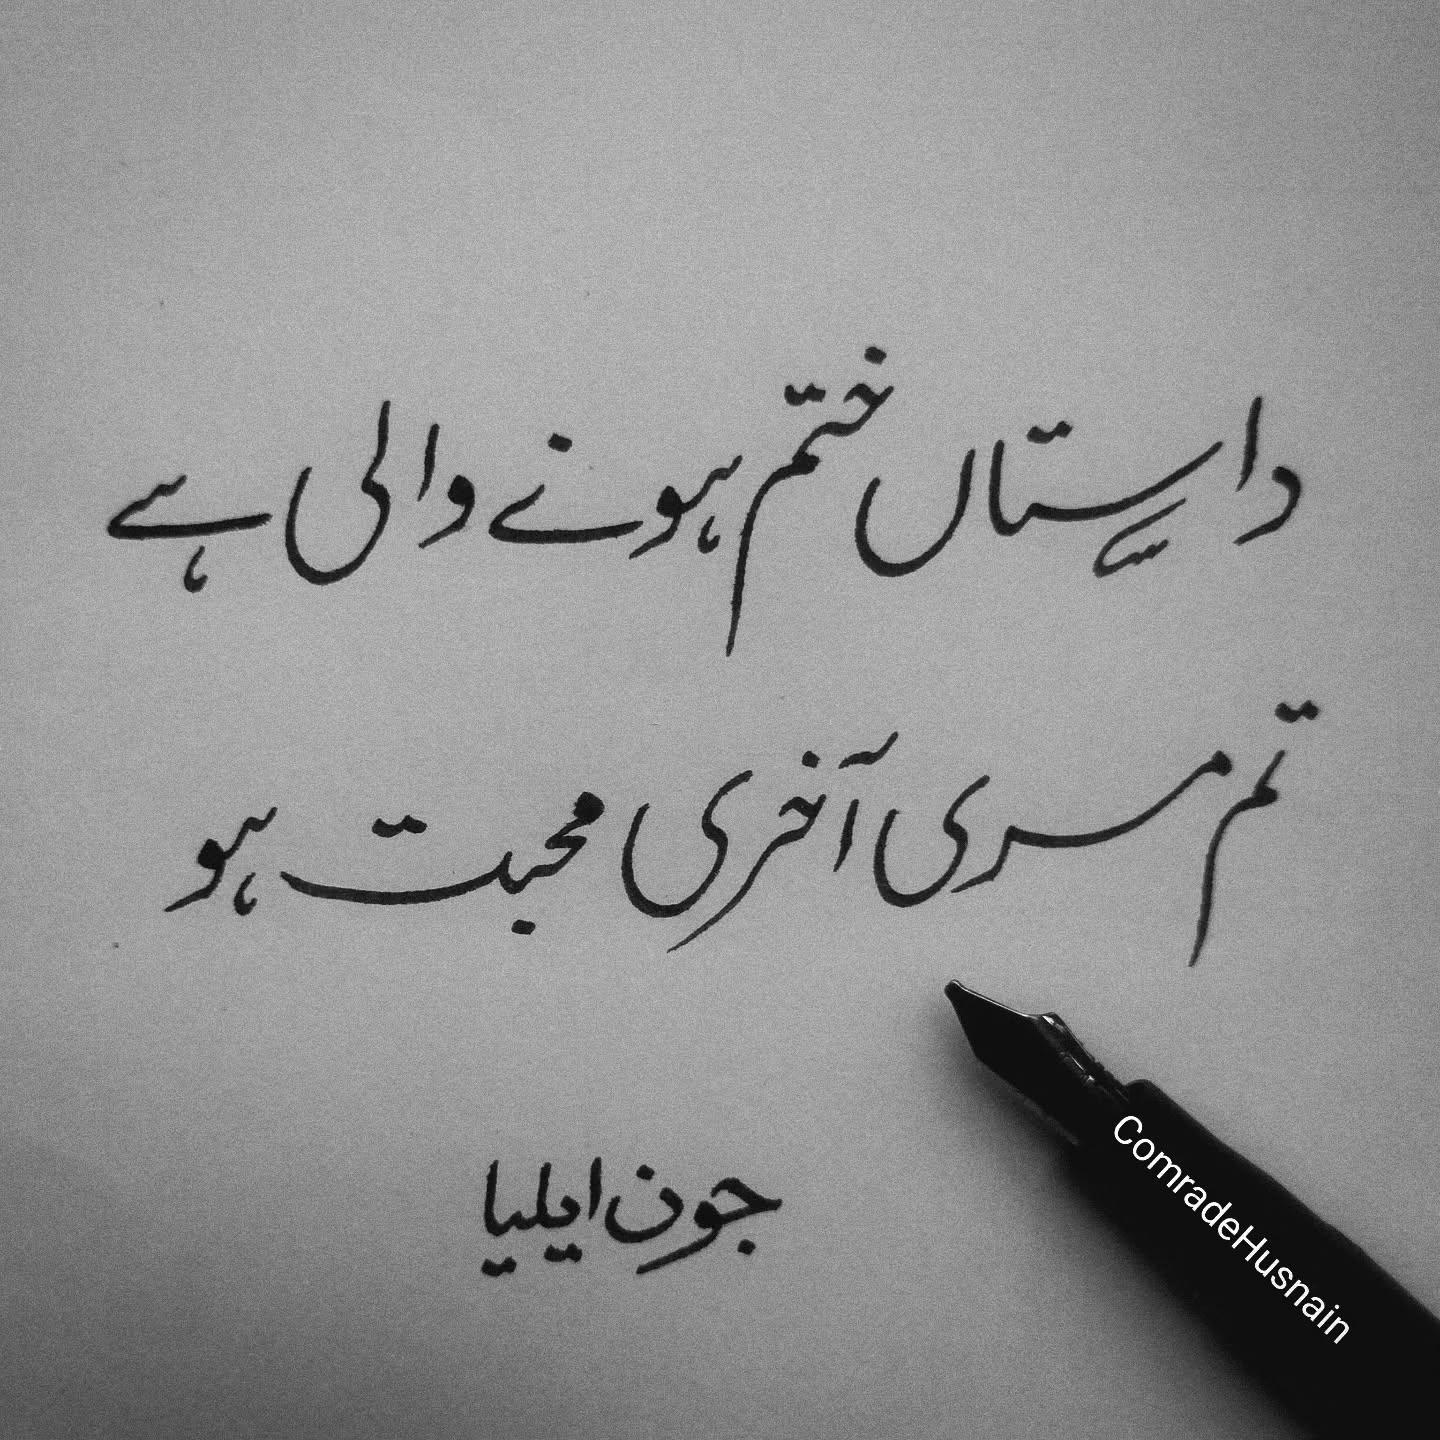 داستاں ختم ہونے والی ہے
تم مری آخری محبت ہو
جون ایلیا
ComradeHusnain